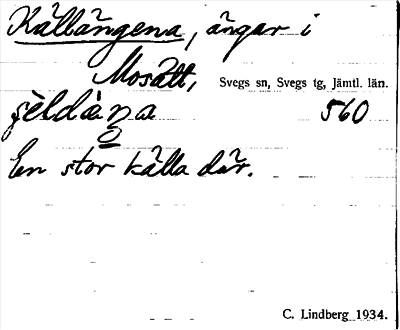 Källängena, ängar i
Mosätt, Svegs sn, Svegs tg, Jämtl. län.
560
En stor källa där.
C. Lindberg 1934.